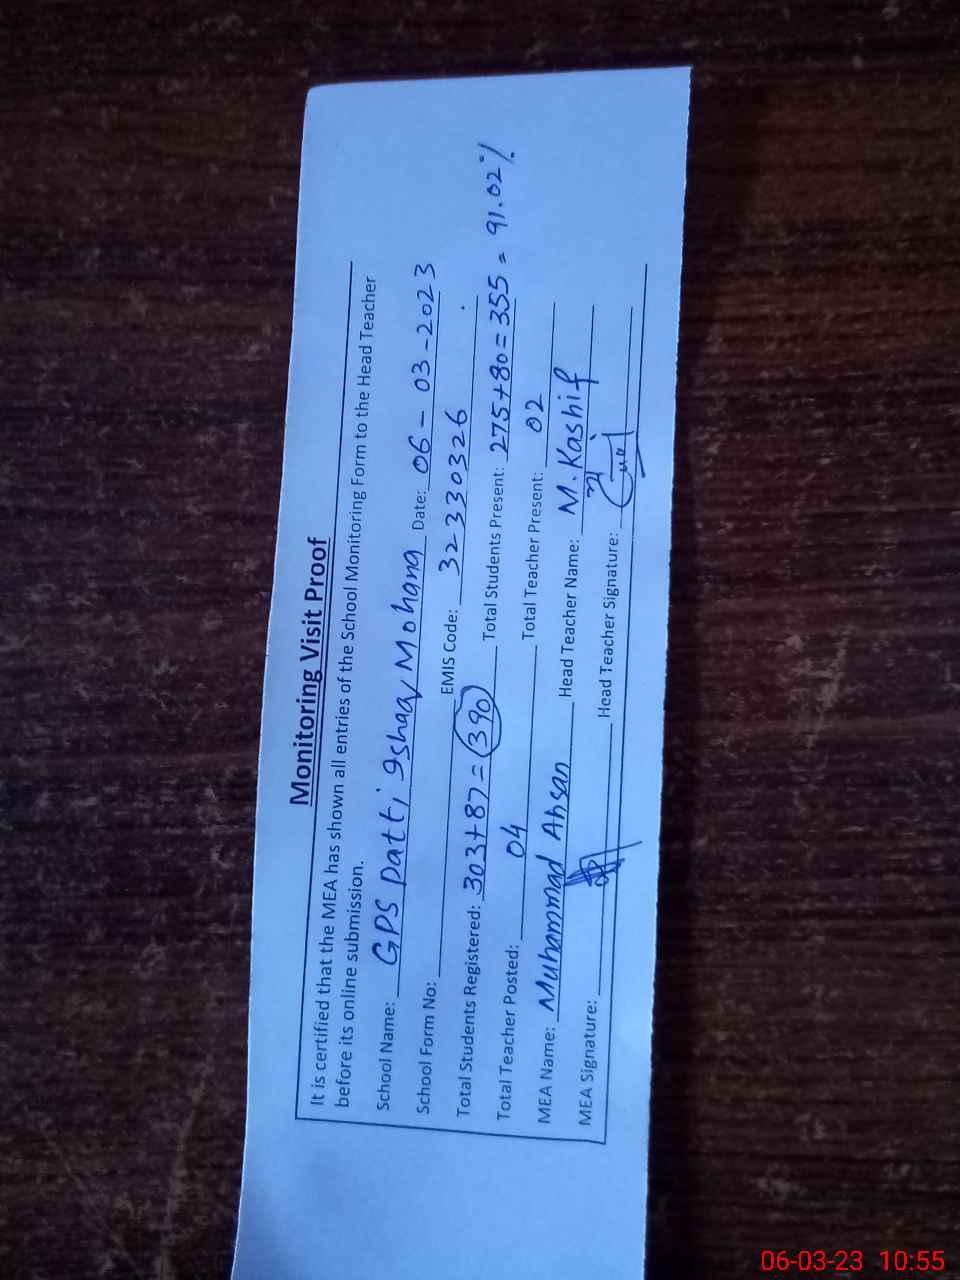 Monitoring Visit Proof
It is certified that the MEA has shown all entries of the School Monitoring Form to the Head Teacher
before its online submission.
School Name: GPS patti Ishaq Mohana Date: 06-03-2023
School Form No: EMIS Code: 32330326
Total Students Registered: 303+87=390 Total Students Present: 275+80=355 = 91.02%
Total Teacher Posted: 04 Total Teacher Present: 02
MEA Name: Muhammad Ahsan Head Teacher Name: M. Kashif
MEA Signature: Head Teacher Signature:
06-03-23 10:55